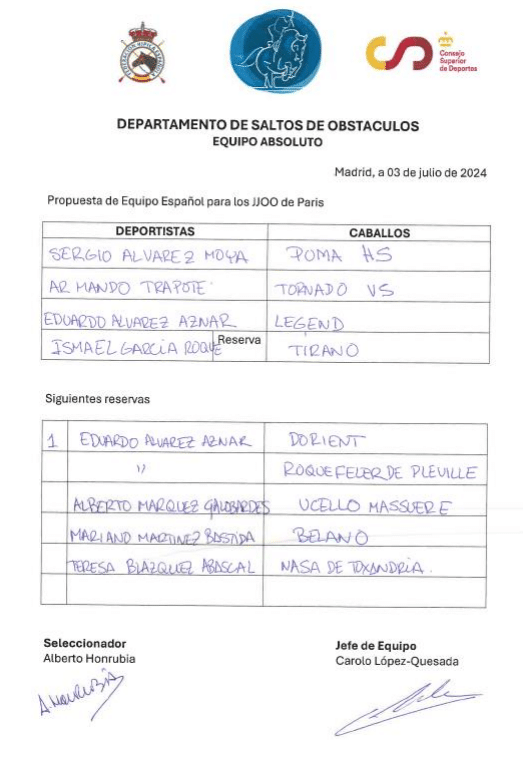 FEDERACIÓN HÍPICA ESPAÑOLA
Consejo
Superior
de Deportes
DEPARTAMENTO DE SALTOS DE OBSTACULOS
EQUIPO ABSOLUTO
Madrid, a 03 de julio de 2024
Propuesta de Equipo Español para los JJOO de Paris
DEPORTISTAS CABALLOS
SERGIO ALVAREZ MOYA POMA HS
ARMANDO TRAPOTE TORNADO VS
EDUARDO ALVAREZ AZNAR LEGEND
ISMAEL GARCIA ROQUE Reserva TIRANO
Siguientes reservas
1 EDUARDO ALVAREZ AZNAR DORIENT
" ROQUEFELER DE PLEVILLE
ALBERTO MARQUEZ GALOBARDES UCELLO MASSUERE
MARIANO MARTINEZ BASTIDA BELANO
TERESA BLAZQUEZ ABASCAL NASA DE TOXANDRIA.
Seleccionador Jefe de Equipo
Alberto Honrubia Carolo López-Quesada
A. HONRUBIA